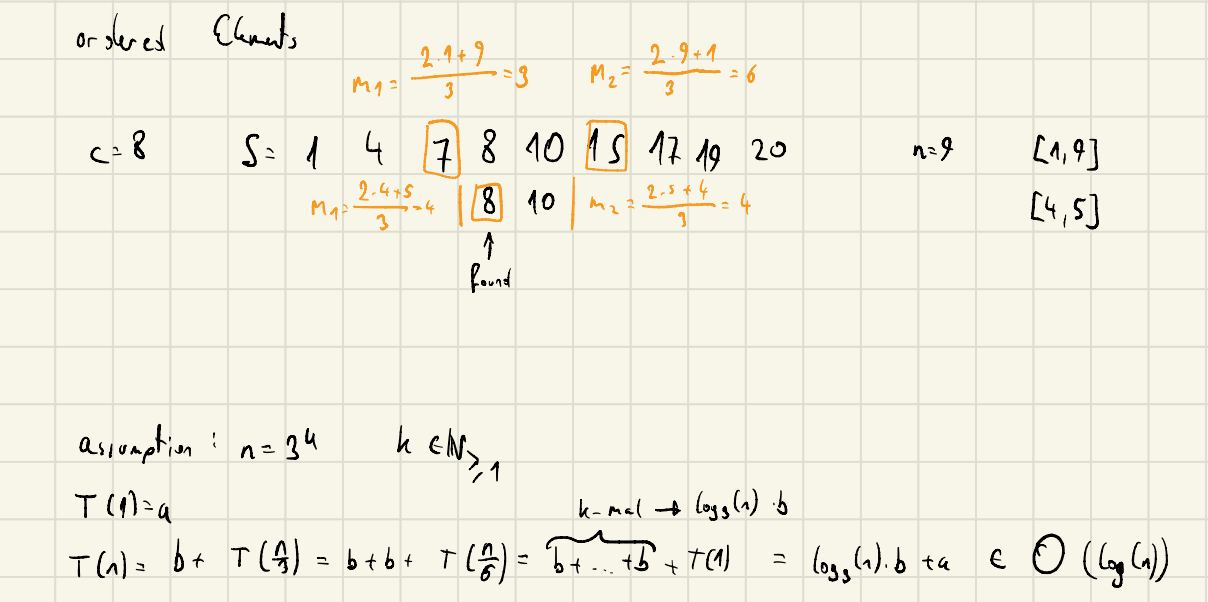 ordered Elements
m₁ = (2·1+9)/3 = 3 m₂ = (2·9+1)/3 = 6
c=8 S= 1 4 7 8 10 15 17 19 20 n=9 [1,9]
m₁ = (2·4+5)/3 = 4 | 8 10 | m₂ = (2·5+4)/3 = 4 [4,5]
↑
found
assumption: n=3^k k ∈ ℕ≥1
T(1)=a
k-mal → log₃(n)·b
T(n) = b + T(n/3) = b+b+ T(n/6) = b+...+b + T(1) = log₃(n)·b + a ∈ O(log(n))